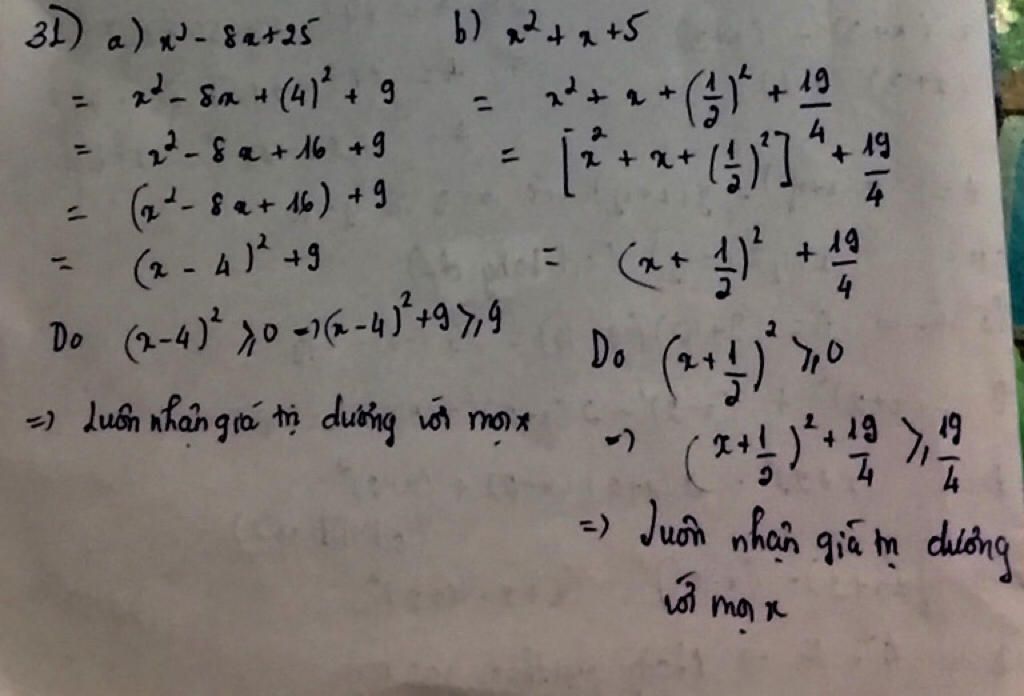 31) a) x² - 8x + 25
= x² - 8x + (4)² + 9
= x² - 8x + 16 + 9
= (x² - 8x + 16) + 9
= (x - 4)² + 9
Do (x-4)² ≥ 0 => (x-4)² + 9 ≥ 9
=> Luôn nhận giá trị dương với mọi x
b) x² + x + 5
= x² + x + (1/2)² + 19/4
= [x² + x + (1/2)²] + 19/4
= (x + 1/2)² + 19/4
Do (x + 1/2)² ≥ 0
=> (x + 1/2)² + 19/4 ≥ 19/4
=> Luôn nhận giá trị dương
với mọi x